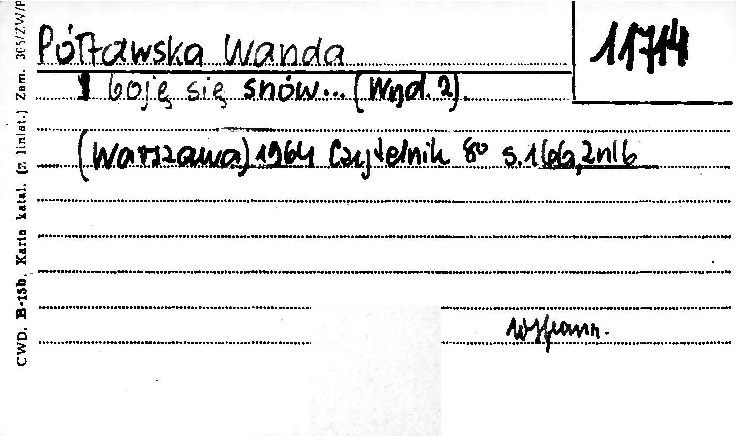 11714
Półtawska Wanda
I boję się snów... (Wyd. 2).
(Warszawa) 1964 Czytelnik 8° s. 166, 2nlb
CWD. B-15b. Karta katal. (z liniat.) Zam. 305/ZW/P